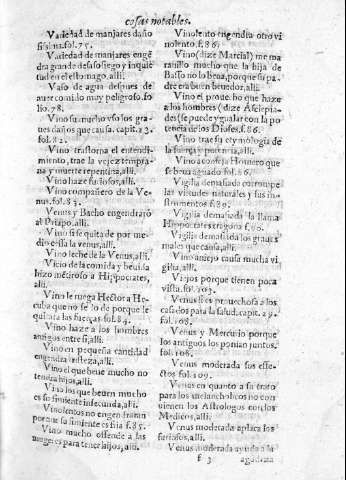 cosas notables.
Variedad de manjares daño
sissima.fol.75.
Variedad de manjares engē
dra grande desasosiego y inquie
tud en el estomago,alli.
Vaso de agua despues de
auer comido muy peligroso.fo
lio.78.
Vino su mucho vso los gra
ues daños que causa.capit.23.
fol.82.
Vino trastorna el entendi-
miento, trae la vejez tempra-
na y muerte repentina,alli.
Vino haze furiosos,alli.
Vino compañero de la Ve
nus.fol.83.
Venus y Bacho engendrarō
al Priapo,alli.
Vino si se quita de por me-
dio cessa la venus,alli.
Vino leche de la Venus,alli.
Vicio de la comida y beuida
hizo
a Hippocrates,
alli.
Vino le ruega Hector a He
cuba que no se lo de porque le
quitara las fuerças.fol.84.
Vino haze a los hombres
entre si,alli.
Vino en pequeña cantidad
engendra tristeza,alli.
Vino el que beue mucho no
tendra hijos,alli.
Vino los que beuen mucho
es su simiente infecunda,alli.
Vinolentos no engendraran
porque su simiente es fria f.85.
Vino mucho offende a las
mugeres para tener hijos,alli.
Vinolento engendra otro vi
nolento.f.86.
Vino(dize Marcial) me ma
rauillo mucho que la hija de
Basso no lo beua,porque su pa-
dre era buen beuedor,alli.
Vino el prouecho que haze
a los hombres (dize Asclepia-
des(se puede ygualar con la po
tencia de los Dioses,f.86.
Vino trae su etymologia de
la fuerça y potencia,alli.
Vino aconseja Homero que
se beua aguado fol.86.
Vigilia demasiada corrompe
las virtudes naturales y sus in-
strumentos f.89.
Vigilia demasiada la llama
Hippocrates
f.90.
Vigilia demasiada los graues
males que causa,alli.
Vino anejo causa mucha vi
gilia,alli.
Viejos porque tienen poca
vista.fol.103.
Venus si es prouechosa a los
casados para la salud.capit.29.
fol.106.
Venus y Mercurio porque
los antiguos los ponian juntos.
fol.106.
Venus moderada sus effe-
ctos fol.109.
Venus en quanto a su trato
para los melancholicos no con
uienen los Astrologos con los
Medicos,alli.
Venus moderada aplaca los
furiosos,alli.
Venus moderada ayuda a la
f 3